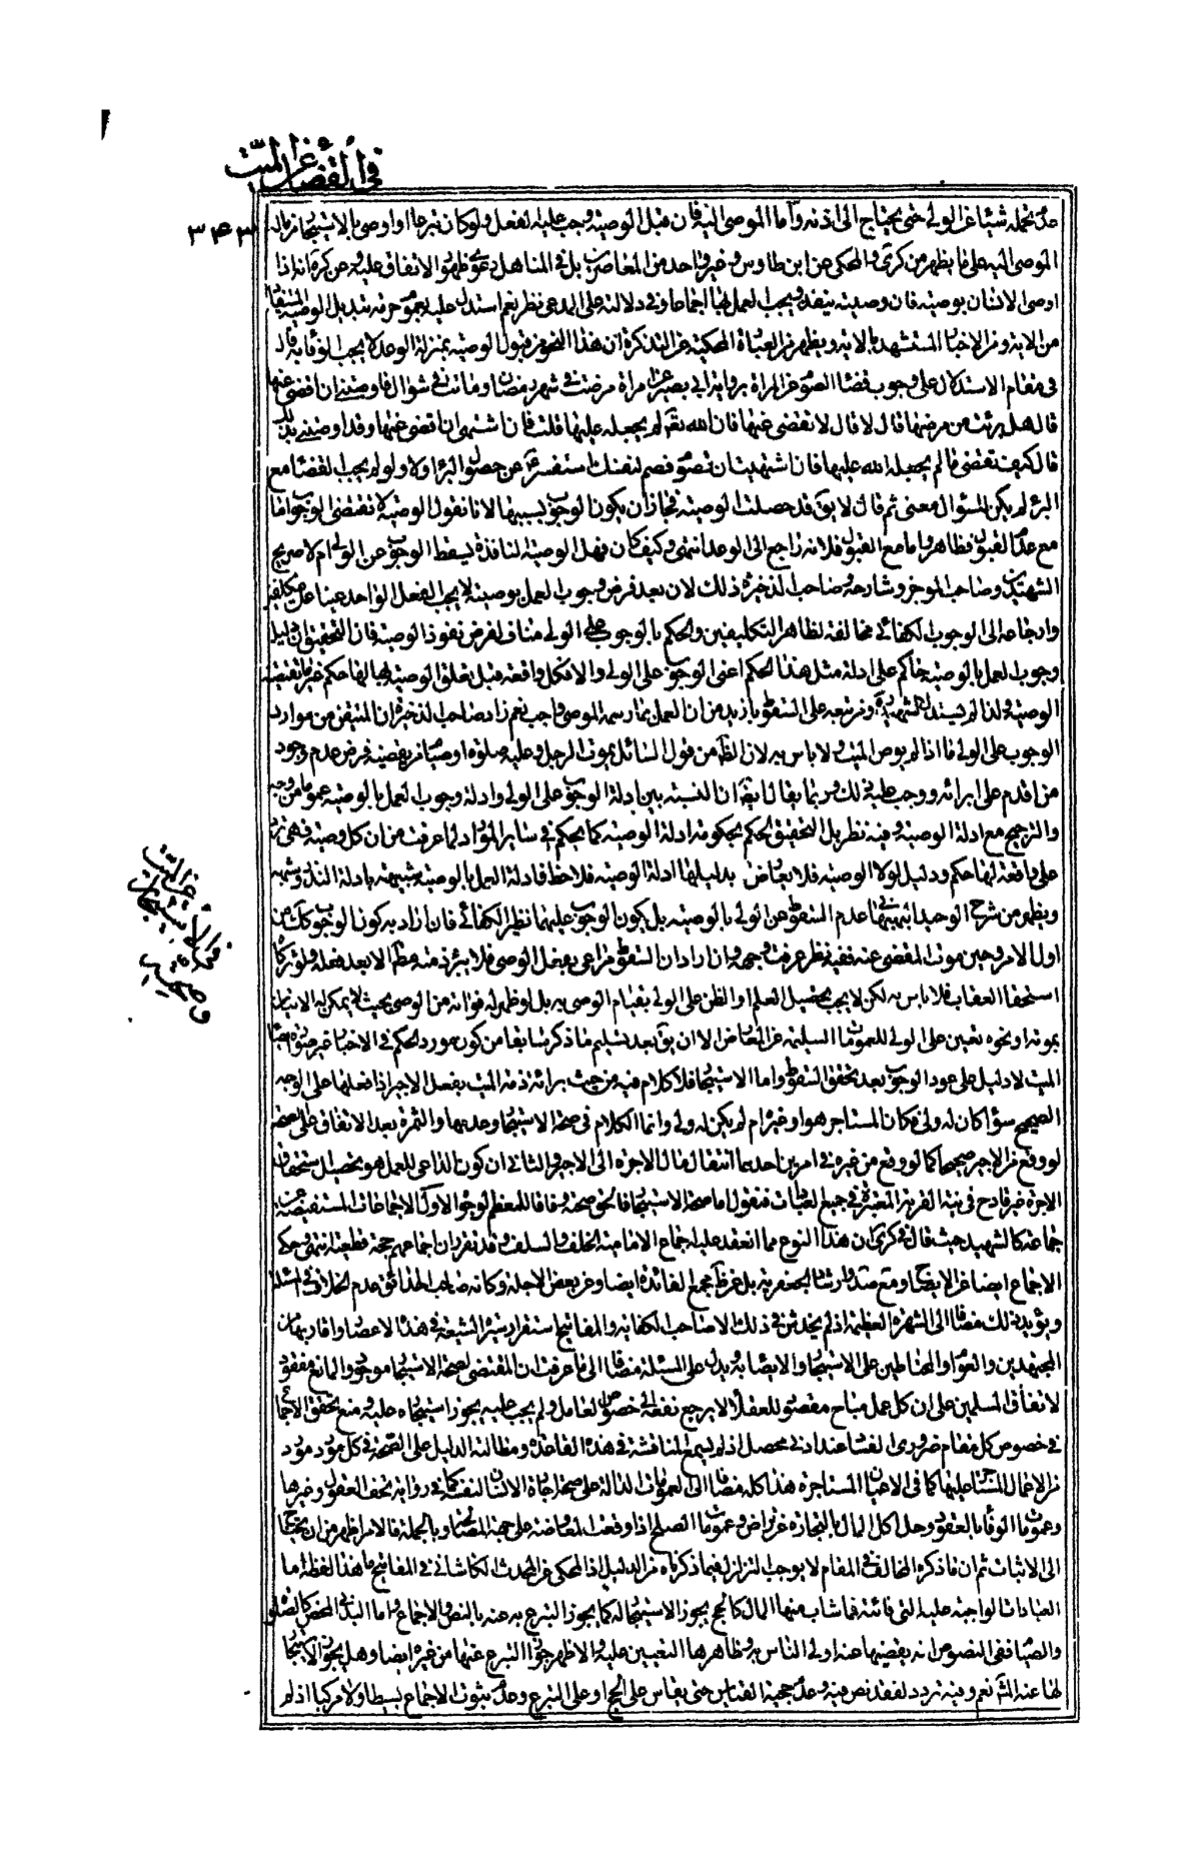 في القضاء عن الميت
٣٤٣
عدم تحمله شيئا عن الولي حتى يحتاج الى اذنه واما الموصى اليه فان قبل الوصية وجب عليه الفعل ولو كان تبرعا او اوصى بالاستيجار من مال
الموصى اليه على ما يظهر من كرى والمحكى عن ابن طاوس وغير واحد من المعاصرين بل في المناهل دعوى ظهور الاتفاق عليه وعن كره انه اذا
اوصى الانسان بوصية فان وصيته ينفذ ويجب العمل بها اجماعا وفي دلالته على المدعى نظر نعم استدل عليه بعموم حرمة تبديل الوصية المستفاد
من الاية ومن الاخبار المستشهد بالاية ويظهر من العبارة المحكية عن التذكرة ان هذا النحو من قبول الوصية بمنزلة الوعد لا يجب الوفاء به قال
في مقام الاستدلال على وجوب قضاء الصوم عن المراة برواية ابي بصير عن امراة مرضت في شهر رمضان وماتت في شوال فاوصتني ان اقضي عنها
قال هل برئت من مرضها قال لا قال لا تقضى عنها فان الله تعالى لم يجعله عليها قلت فان اشتهى ان اقضي عنها وقد اوصتني بذلك
قال كيف تقضى ما لم يجعله الله عليها فان اشتهيت ان تصوم فصم لنفسك استفسر ع عن حصول البرء اولا ولو لم يجب القضاء مع
البرء لم يكن للسؤال معنى ثم قال لا يق قد حصلت الوصية فجاز ان يكون الوجوب بسببها لانا نقول الوصية لا تقتضى الوجوب اما
مع عدم القبول فظاهر واما مع القبول فلانه راجع الى الوعد انتهى وكيف كان فهل الوصية النافذة يسقط الوجوب عن الولي ام لا صريح
الشهيدين وصاحب الموجز وشارحه وصاحب الذخيرة ذلك لان بعد فرض وجوب العمل بوصيته لا يجب الفعل الواحد عينا على مكلفين
وارجاعه الى الوجوب الكفائي مخالفة لظاهر التكليفين والحكم بالوجوب على الولي مناف لفرض نفوذ الوصية فان التحقيق ان دليل
وجوب العمل بالوصية حاكم على ادلة مثل هذا الحكم اعنى الوجوب على الولي والا فكل واقعة قبل تعلق الوصية بها لها حكم غير ما يقتضيه
الوصية ولذا لم يستدل الشهيد ره ومن تبعه على السقوط بازيد من ان العمل بما رسمه الموصى واجب نعم زاد صاحب الذخيرة ان المتيقن من موارد
الوجوب على الولي ما اذا لم يوص الميت ولا باس به لان الظ من قول السائل يموت الرجل وعليه صلوة او صيام من يقضيه فرض عدم وجود
من اقدم على ابرائه ووجب عليه ذلك وربما يقال ايضا ان النسبة بين ادلة الوجوب على الولي وادلة وجوب العمل بالوصية عموم من وجه
والترجيح مع ادلة الوصية وفيه نظر بل التحقيق الحكم بحكومة ادلة الوصية كما يحكم في ساير الموارد لما عرفت من ان كل وصية فهى ترد
على واقعة لها حكم ودليل لولا الوصية فلا يعارض بدليلها ادلة الوصية فلاحظ فادلة العمل بالوصية شبيهة بادلة النذر وشبهه
ويظهر من شرح الوحيد البهبهاني عدم السقوط عن الولي بالوصية بل يكون الوجوب عليهما نظير الكفائي فان اراد به كون الوجوب كذلك من
اول الامر وحين موت المقضى عنه ففيه نظر عرفت وجهه وان اراد ان السقوط مراعى بفعل الوصى فلا يبرء ذمته الا بعد فعله ولو تركا
استحقا العقاب فلا باس به لكن لا يجب تحصيل العلم او الظن على الولي بقيام الوصى به بل لو ظهر له فواته من الوصى بحيث لا يمكن له الاتيان
بموته او نحوه تعين على الولي للعمومات السليمة عن المعارض الا ان يق بعد تسليم ما ذكر سابقا من كون مورد الحكم في الاخبار غير صورة ايصاء
الميت لا دليل على عود الوجوب بعد تحقق السقوط واما الاستيجار فلا كلام فيه من حيث برائة ذمة الميت بفعل الاجير اذا فعلها على الوجه
الصحيح سواء كان له ولي فكان المستاجر هو او غيره ام لم يكن له ولي وانما الكلام في صحة الاستيجار وعدمها والثمرة بعد الاتفاق على الصحة
لو وقع من الاجير صحيحا كما لو وقع من غيره في امرين احدهما انتقال مال الاجرة الى الاجير والثاني ان كون الداعى للعمل هو تحصيل استحقاق
الاجرة غير قادح في نية القربة المعتبرة في جميع العبادات فنقول اما صحة الاستيجار فالحق صحته وفاقا للمعظم لوجوه الاول الاجماعات المستفيضة عن
جماعة كالشهيد حيث قال في كرى ان هذا النوع مما انعقد عليه اجماع الامامية الخلف والسلف وقد تقرر ان اجماعهم حجة قطعية انتهى وحكى
الاجماع ايضا عن الايضاح ومع صد وارشاد الجعفرية بل عن ظ مجمع الفائدة ايضا وعن بعض الاجلة وكانه صاحب الحدائق عدم الخلاف في المسئلة
ويؤيد ذلك مضافا الى الشهرة العظيمة اذ لم يخدش في ذلك الا صاحب الكفاية والمفاتيح استقرار سيرة الشيعة في هذا الاعصار وما قاربها من
المجتهدين والعوام والمحتاطين على الاستيجار والايصاء به ويدل على المسئلة مضافا الى ما عرفت ان المقتضى لصحة الاستيجار موجود والمانع مفقود
لاتفاق المسلمين على ان كل عمل مباح مقصود للعقلاء لا يرجع نفعه الى خصوص العامل ولم يجب عليه يجوز استيجاره عليه ومنع تحقق الاجماع
في خصوص كل مقام ضروري الفساد عند ادنى محصل اذ لم يسمع المناقشة في هذه القاعدة ومطالبة الدليل على الصحة في كل مورد مورد
من الاعمال المستاجر عليها كما في الاعيان المستاجرة هذا كله مضافا الى العمومات الدالة على صحة اجارة الانسان نفسه كما في رواية تحف العقول وغيرها
وعمومات الوفاء بالعقود وحل اكل المال بالتجارة عن تراض وعمومات الصلح اذا وقعت المعاوضة على جهة المصالحة وبالجملة فالامر اظهر من ان يحتاج
الى الاثبات ثم ان ما ذكره المخالف في المقام لا يوجب التزلزل فيما ذكرناه من الدليل اذ المحكى عن المحدث الكاشاني في المفاتيح ما هذا لفظه اما
العبادات الواجبة عليه التي فاتته فما شاب منها المال كالحج يجوز الاستيجار له كما يجوز التبرع به عنه بالنص والاجماع واما البدني المحض كالصلوة
والصيام ففي النصوص انه يقضيها عنه اولى الناس به وظاهرها التعيين عليه والاظهر جواز التبرع عنهما من غيره ايضا وهل يجوز الاستيجار
لهما عنه المش نعم وفيه تردد لفقد نص فيه وعدم حجية القياس حتى يقاس على الحج او على التبرع وعدم ثبوت الاجماع بسيطا ولا مركبا اذ لم
في الاستيجار عن الميت
وصحته